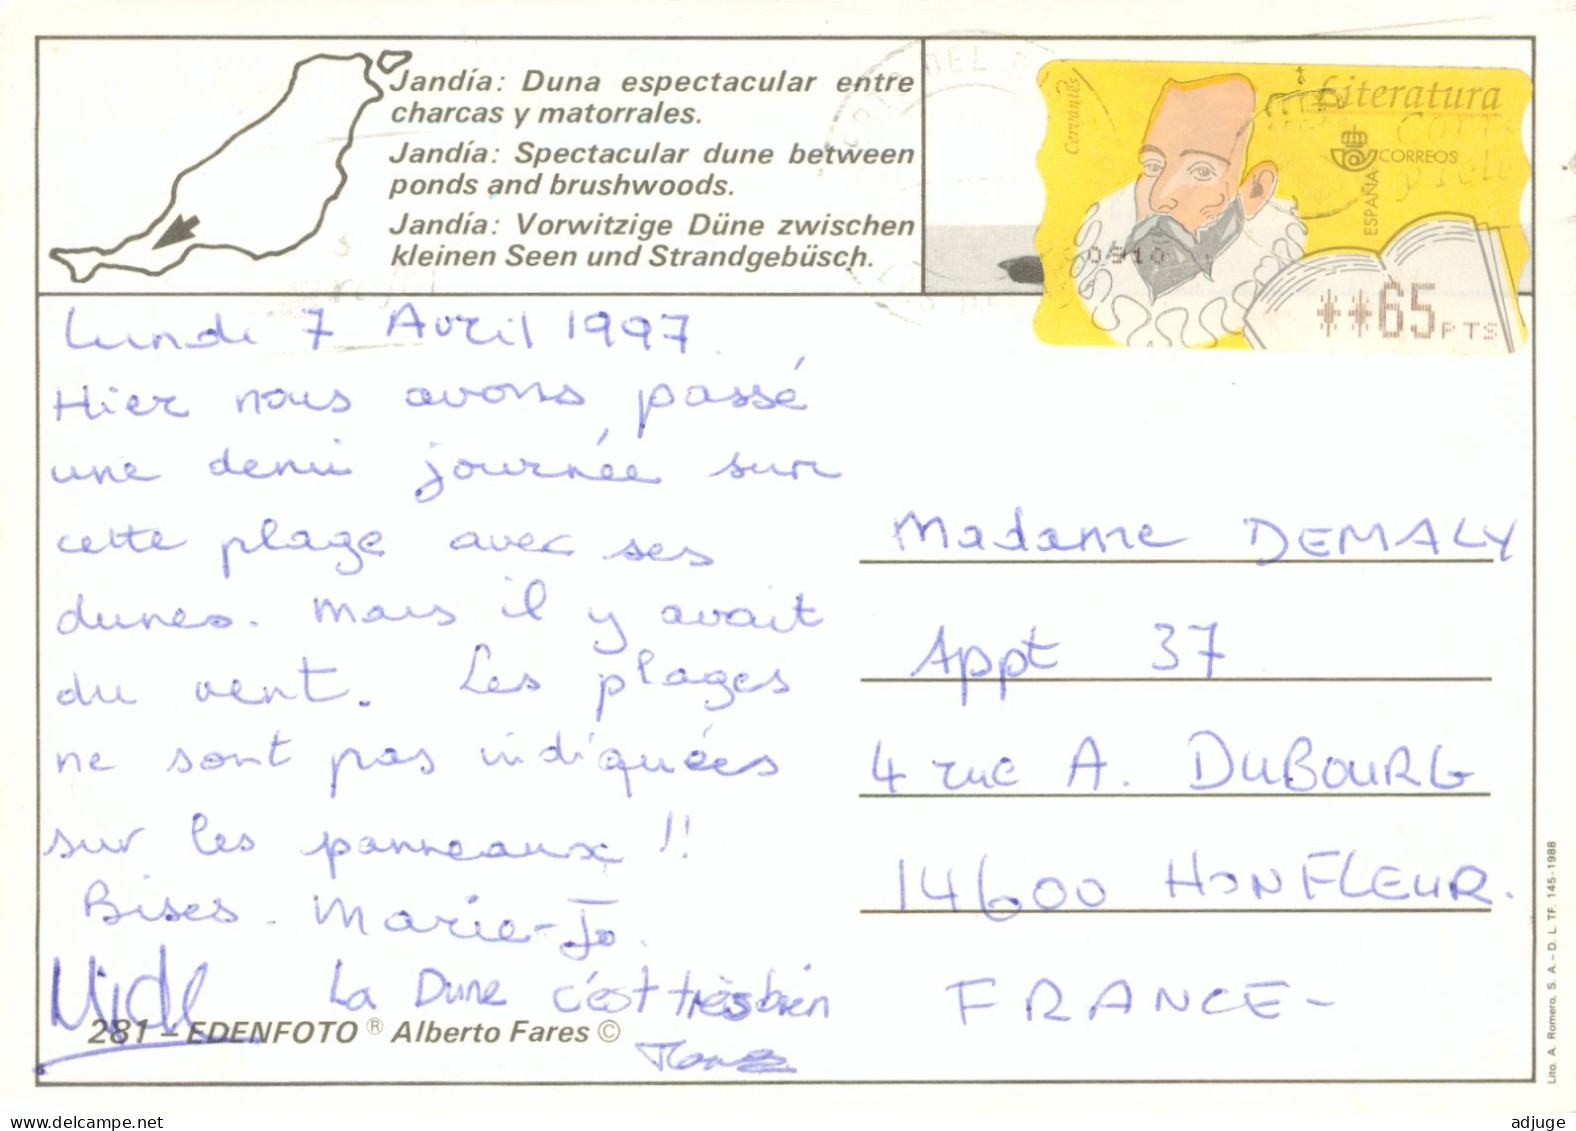 Jandía: Duna espectacular entre
charcas y matorrales.
Jandía: Spectacular dune between
ponds and brushwoods.
Jandía: Vorwitzige Düne zwischen
kleinen Seen und Strandgebüsch.
Cervantes
Literatura
CORREOS
ESPAÑA
0910
**65 PTS
Lundi 7 Avril 1997
Hier nous avons passé
une demi journée sur
cette plage avec ses
dunes. Mais il y avait
du vent. Les plages
ne sont pas indiquées
sur les panneaux !!
Bises. Marie-Jo.
La Dune c'est très bien
281 – EDENFOTO ® Alberto Fares ©
Madame DEMALY
Appt 37
4 rue A. DUBOURG
14600 HONFLEUR.
FRANCE-
Lito. A. Romero, S. A. – D. L. TF. 145-1988
www.delcampe.net
adjuge